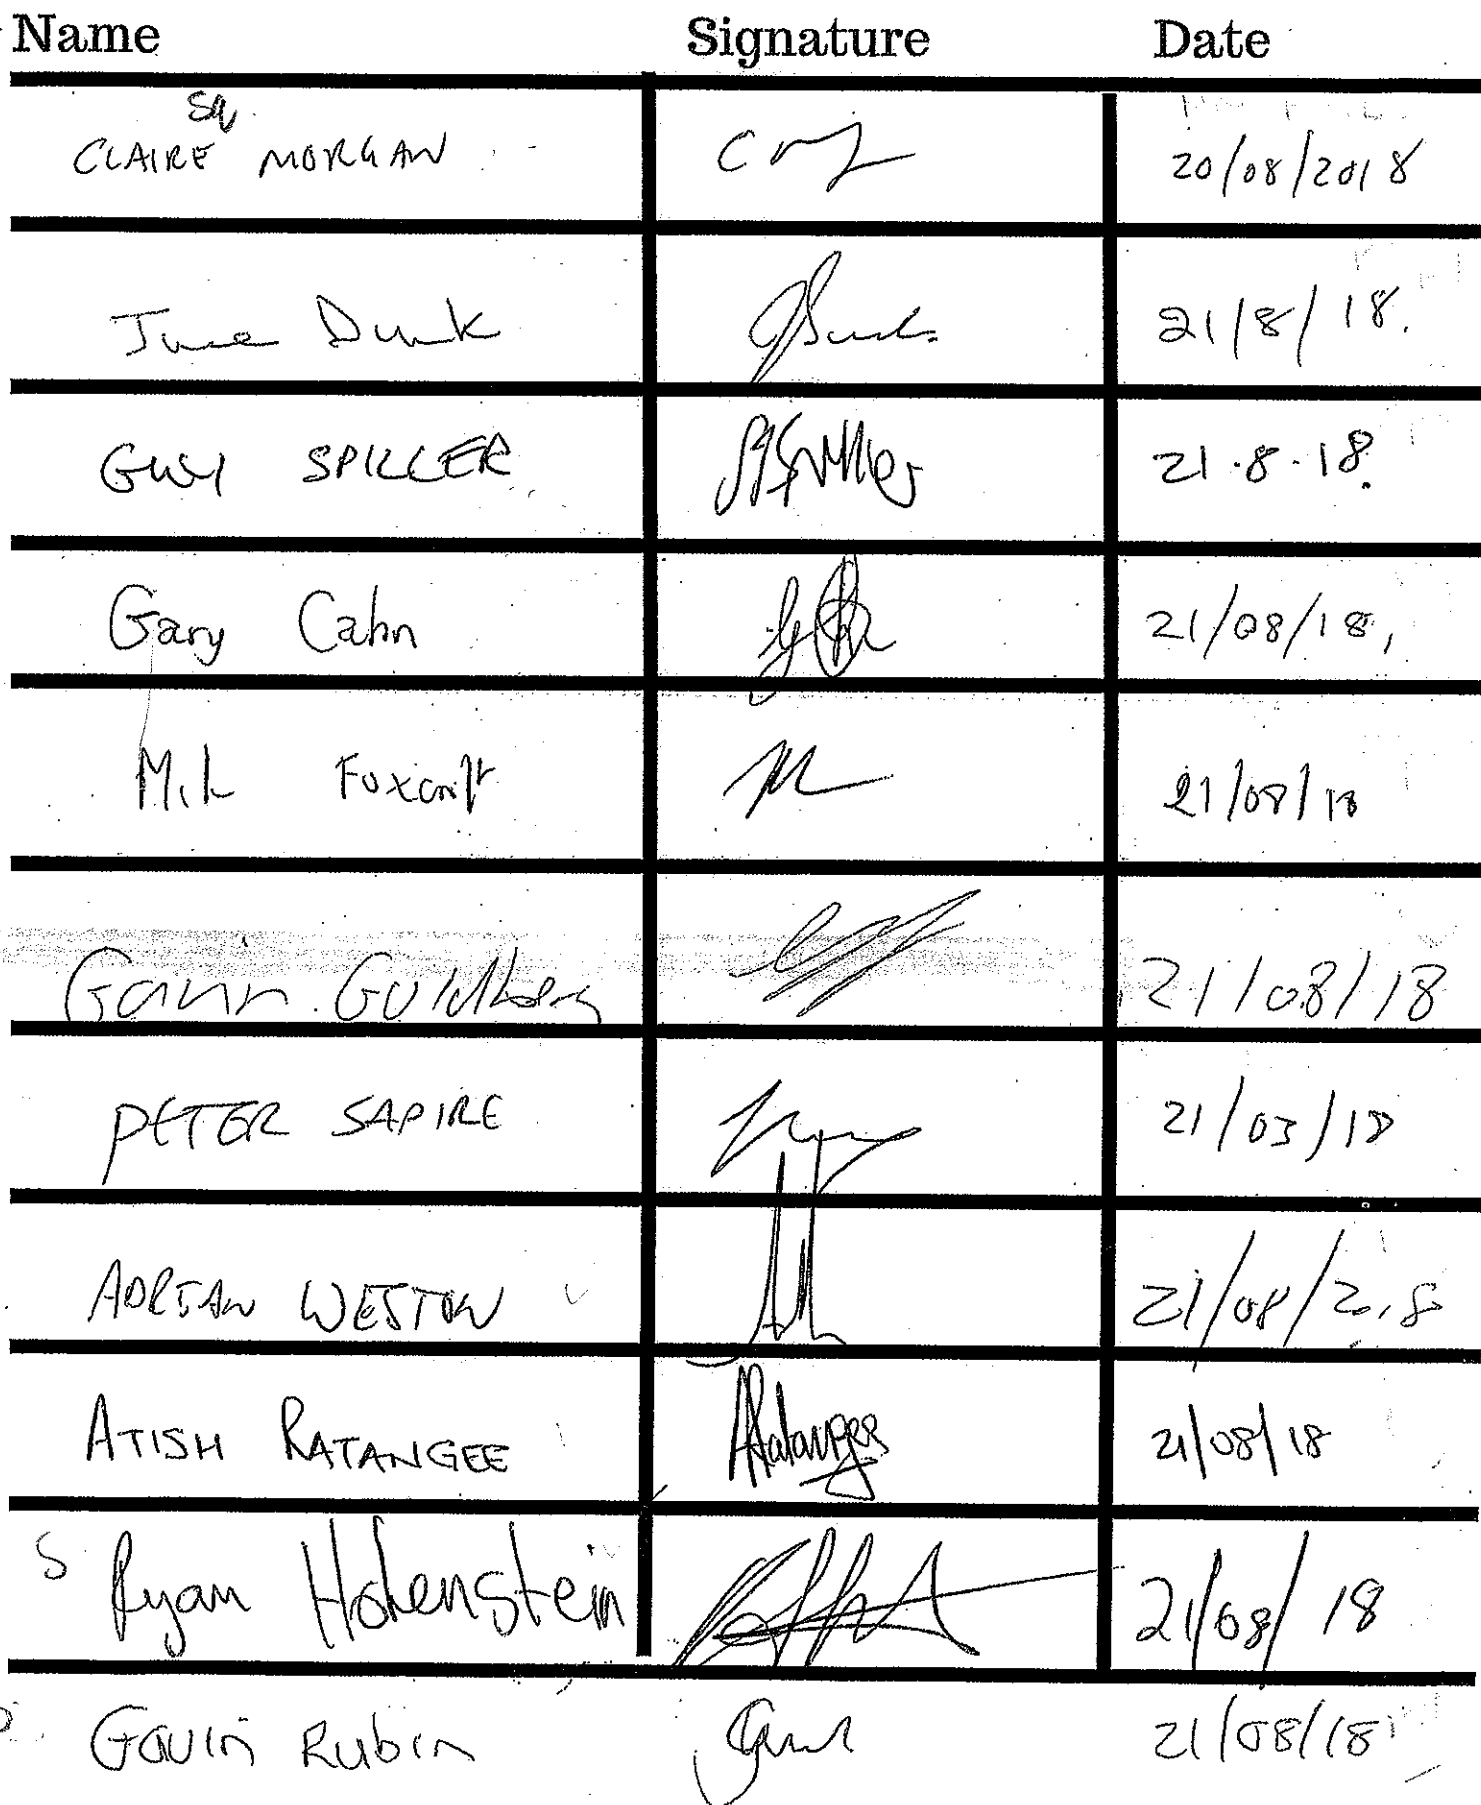 Name Signature Date
CLAIRE MORGAN 20/08/2018
June Dunk 21/8/18.
GUY SPILLER 21.8.18.
Gary Cahn 21/08/18,
Foxcroft 21/08/18
Gavin Goldberg 21/08/18
PETER SAPIRE 21/03/18
ADRIAN WESTON 21/08/2018
ATISH RATANGEE ARatangee 21/08/18
Ryan Hohenstein 21/08/18
Gavin Rubin 21/08/18